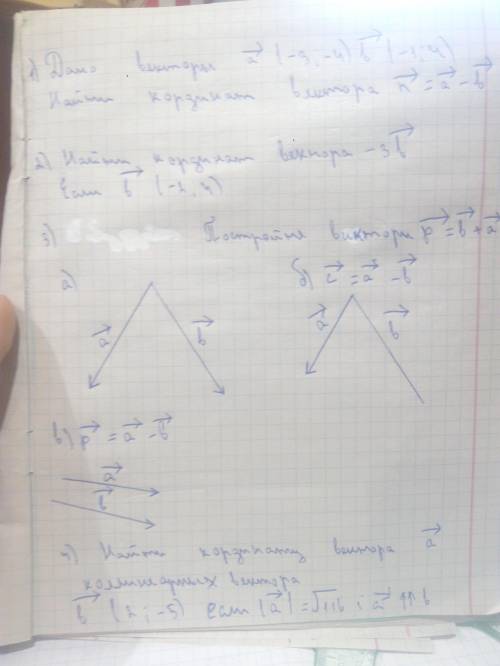 1) Дано векторы a⃗ (-3; -4) b⃗ (-1; 4)
Найти кординат вектора n⃗ = a⃗ - b⃗
2) Найти кординат вектора -3b⃗
Если b⃗ (-2; 4)
3) Постройте векторы p⃗ = b⃗ + a⃗
а) б) c⃗ = a⃗ - b⃗
a⃗ b⃗ a⃗ b⃗
в) p⃗ = a⃗ - b⃗
a⃗
b⃗
4) Найти кординаты вектора a⃗
коллинарных вектора
b⃗ (2; -5) если |a⃗| = √116 ; a⃗ ↑↑ b